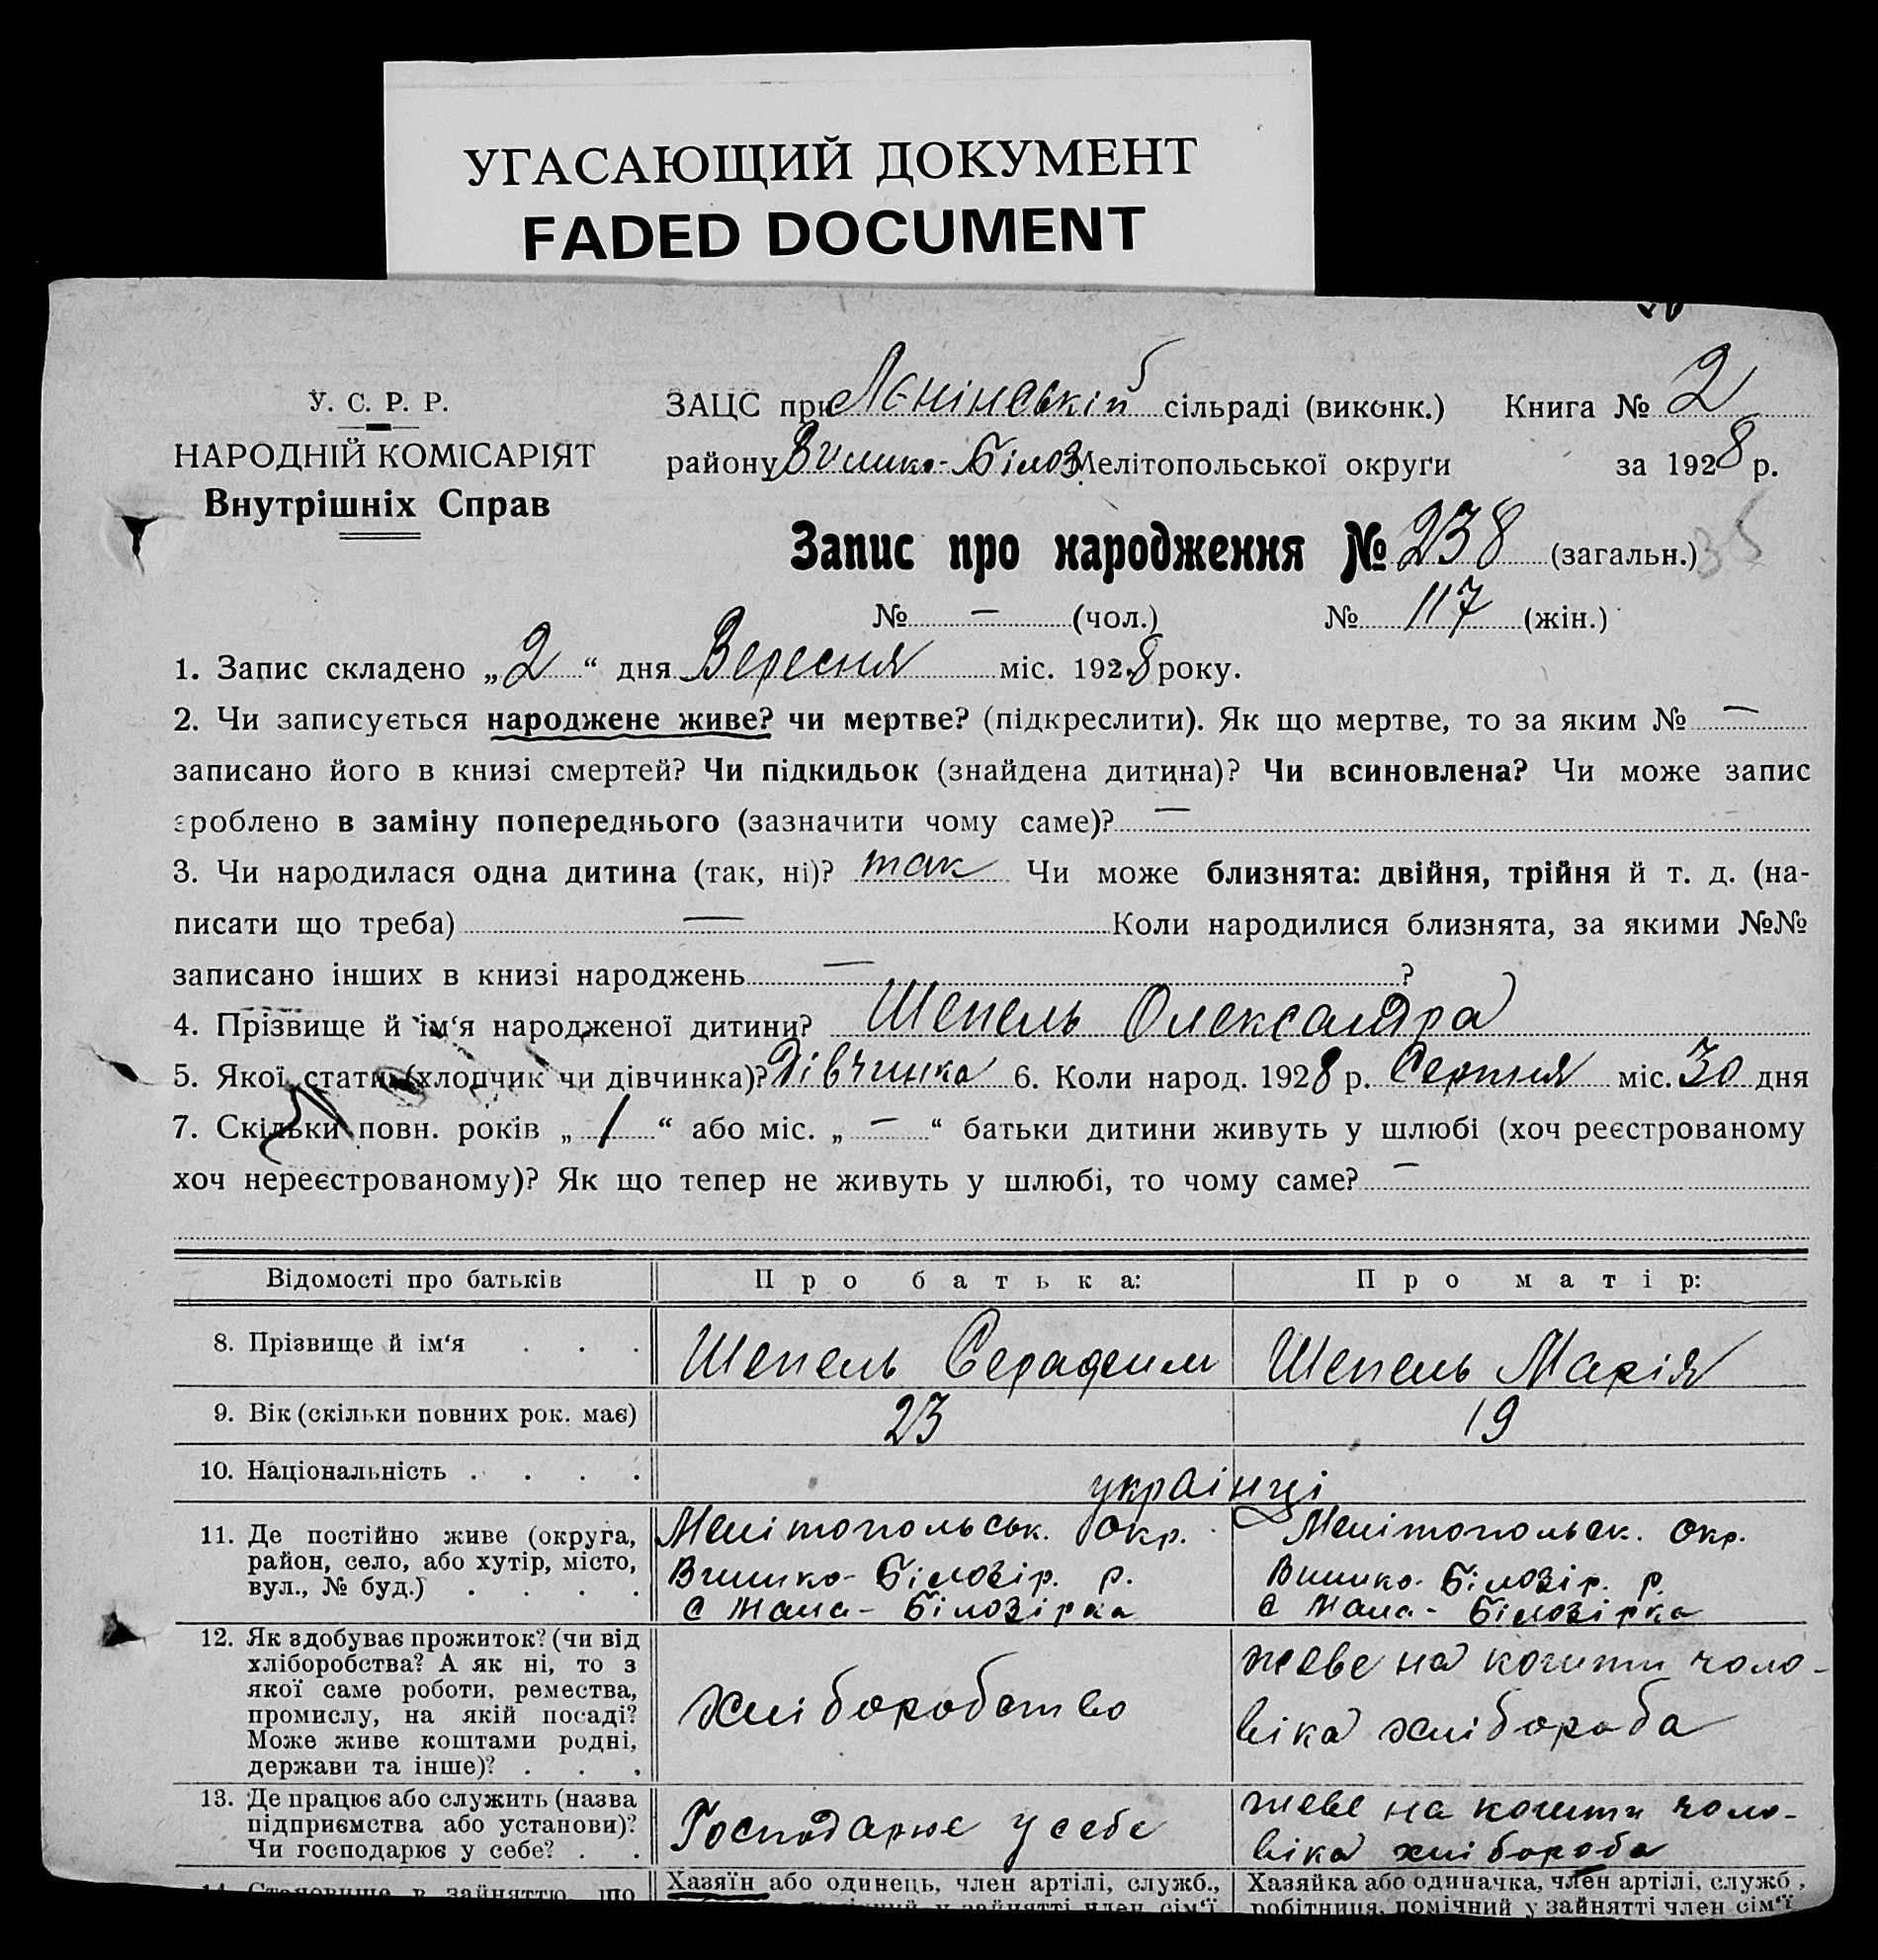 УГАСАЮЩИЙ ДОКУМЕНТ
FADED DOCUMENT
У. С. Р. Р.
НАРОДНІЙ КОМІСАРІЯТ
Внутрішніх Справ
ЗАЦС при Лєнінській сільраді (виконк.) Книга № 2
району В. Білоз. Мелітопольської округи за 1928 р.
Запис про народження № 238 (загальн.) 35
№ — (чол.) № 117 (жін.)
1. Запис складено „2“ дня Вересня міс. 1928 року.
2. Чи записується народжене живе? чи мертве? (підкреслити). Як що мертве, то за яким № —
записано його в книзі смертей? Чи підкидьок (знайдена дитина)? Чи всиновлена? Чи може запис
зроблено в заміну попереднього (зазначити чому саме)? —
3. Чи народилася одна дитина (так, ні)? так Чи може близнята: двійня, трійня й т. д. (на-
писати що треба) — Коли народилися близнята, за якими №№
записано інших в книзі народжень — ?
4. Прізвище й ім‘я народженої дитини? Шепель Олександра
5. Якої стати (хлопчик чи дівчинка)? Дівчинка 6. Коли народ. 1928 р. Серпня міс. 30 дня
7. Скільки повн. років „1“ або міс. „—“ батьки дитини живуть у шлюбі (хоч реєстрованому
хоч нереєстрованому)? Як що тепер не живуть у шлюбі, то чому саме? —
Відомості про батьків Про батька: Про матір:
8. Прізвище й ім‘я . . . Шепель Серафим Шепель Марія
9. Вік (скільки повних рок. має) 23 19
10. Національність . . . . українці
11. Де постійно живе (округа,
район, село, або хутір, місто,
вул., № буд.) . . . .
Мелітопольськ. Окр.
Велико-Білозір. р.
с Мала-Білозірка
Мелітопольск. Окр.
Велико-Білозір. р.
с Мала-Білозірка
12. Як здобуває прожиток? (чи від
хліборобства? А як ні, то з
якої саме роботи, ремества,
промислу, на якій посаді?
Може живе коштами родні,
держави та інше)? . . .
Хліборобство
живе на кошти чоло-
віка хлібороба
13. Де працює або служить (назва
підприємства або установи)?
Чи господарює у себе? . .
Господарює у себе
живе на кошти чоло-
віка хлібороба
14. Становище в зайняттю, що
Хазяїн або одинець, член артілі, служб.,
у зайнятті член сім‘ї
Хазяйка або одиначка, член артілі, служб.,
робітниця, помічний у зайнятті член сім‘ї